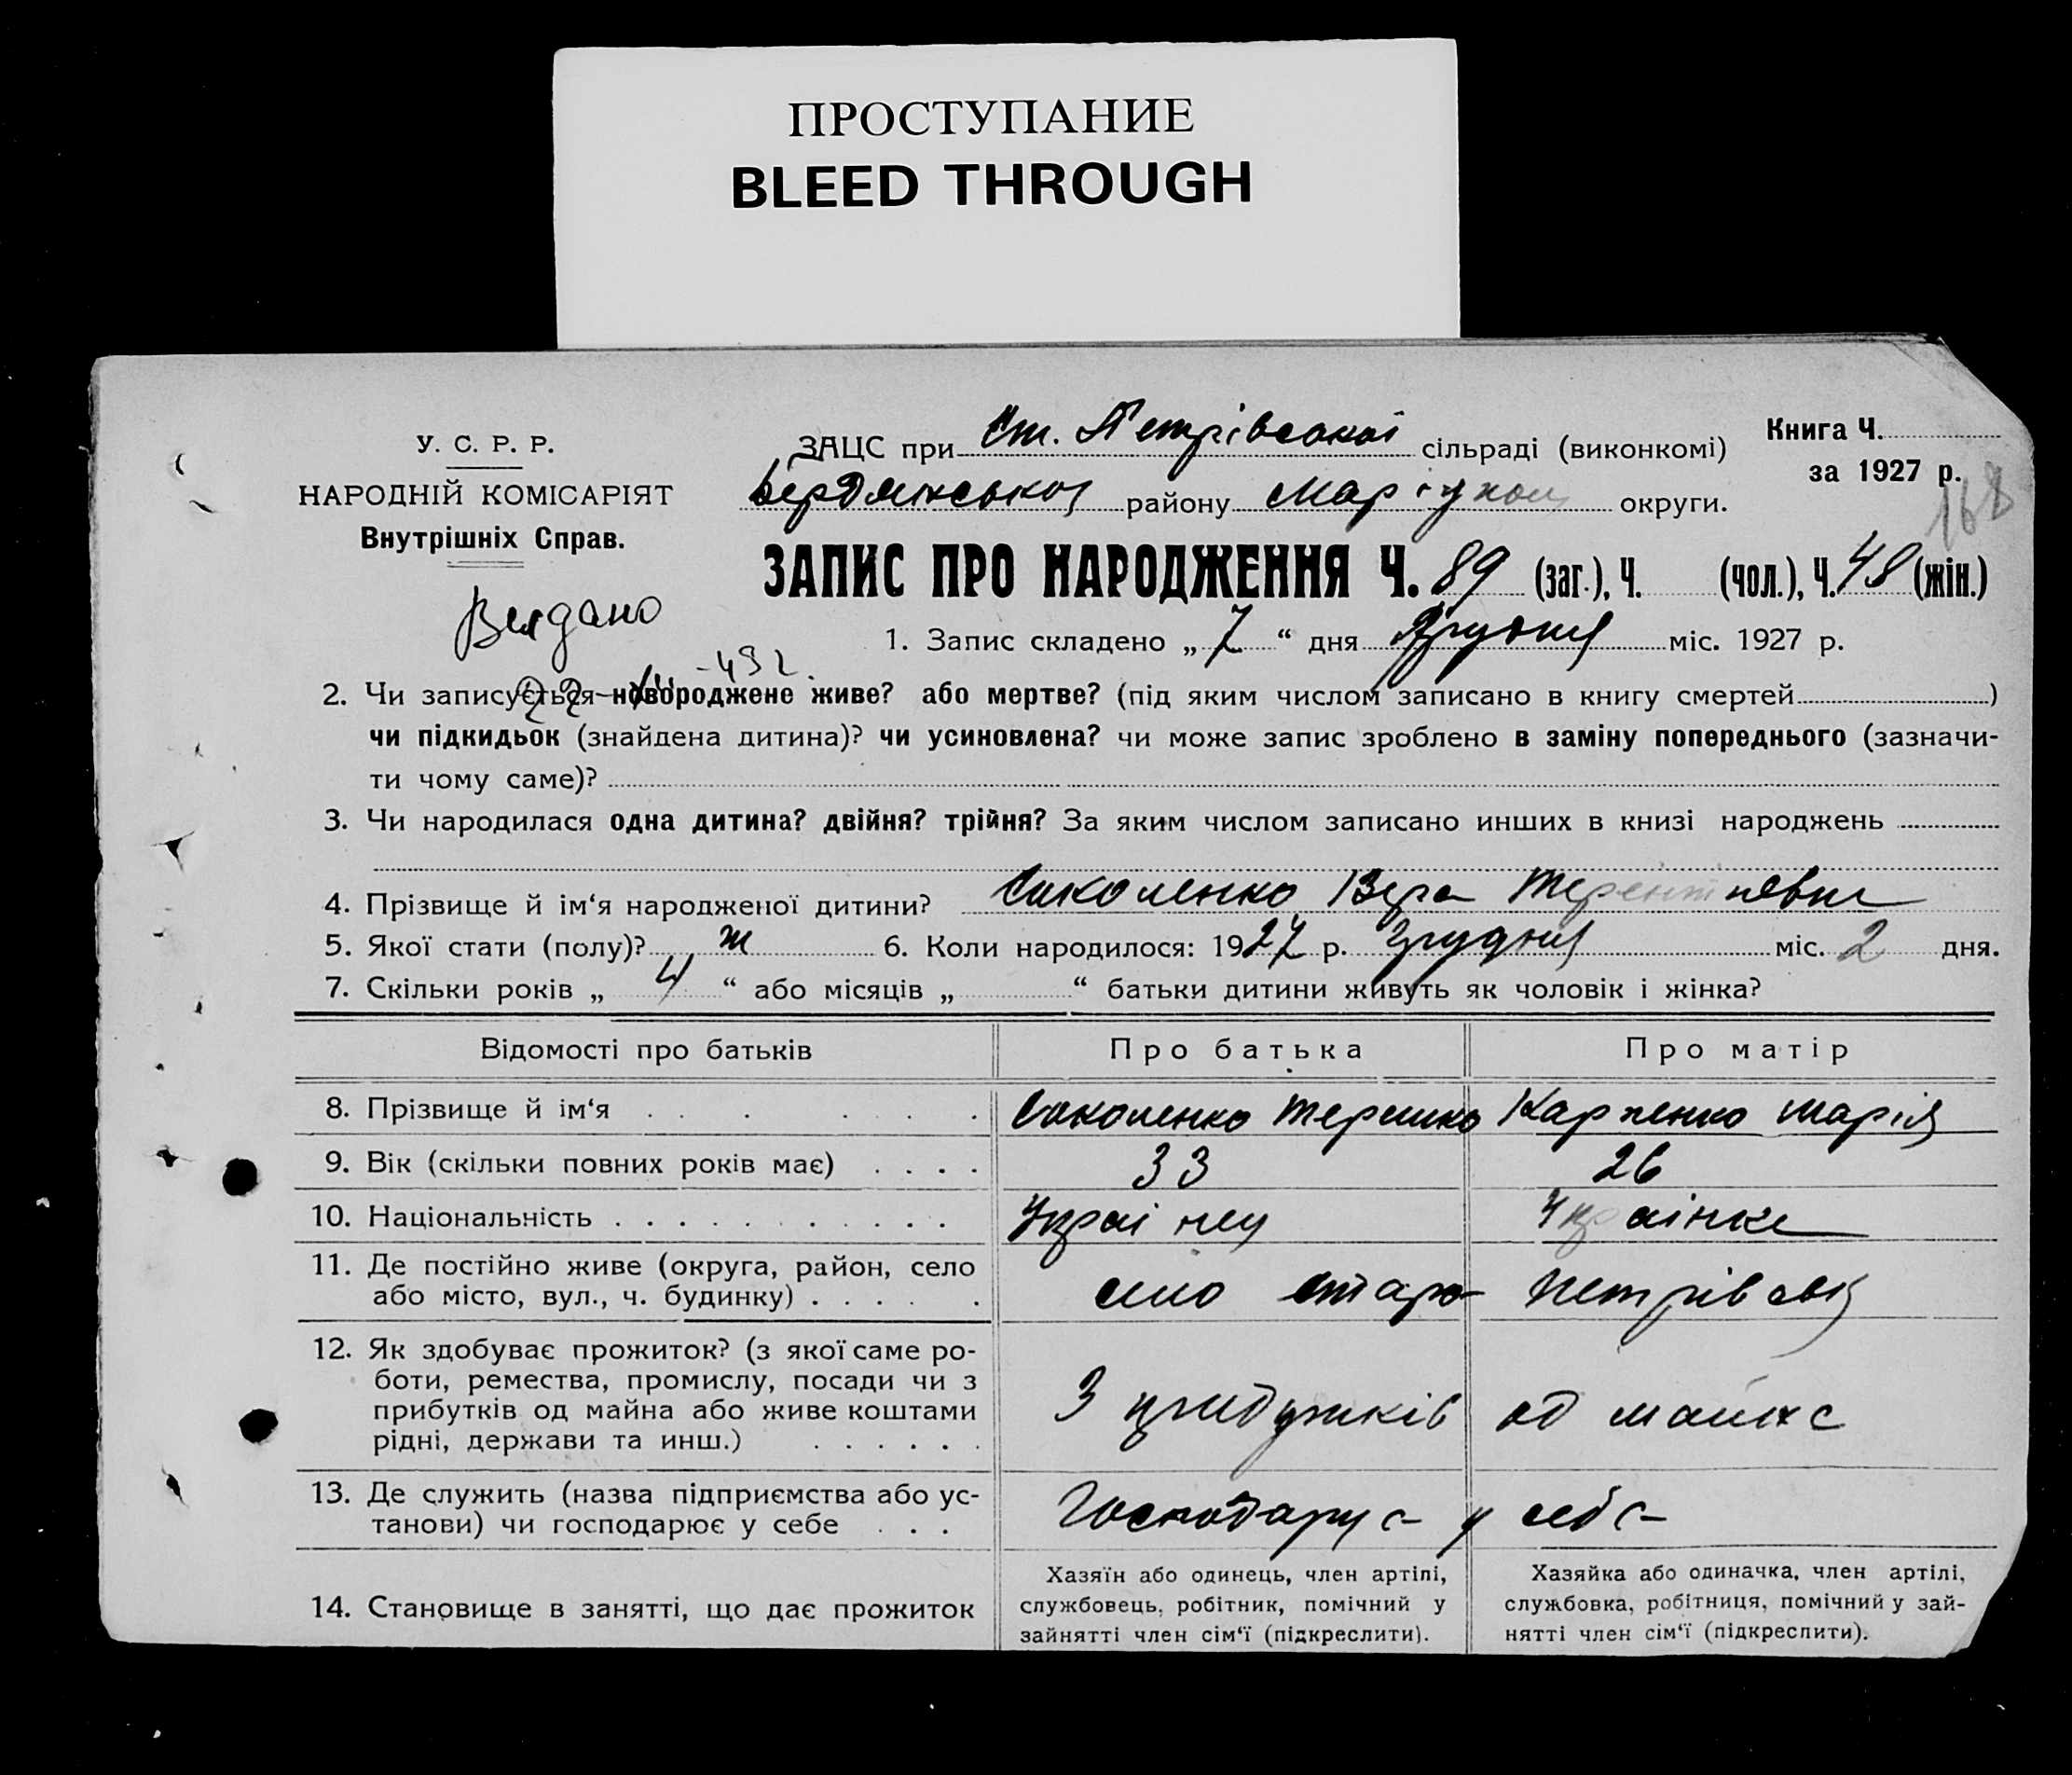 ПРОСТУПАНИЕ
BLEED THROUGH
У. С. Р. Р.
НАРОДНІЙ КОМІСАРІЯТ
Внутрішніх Справ.
Видано
ЗАЦС при Ст. Петрівської сільраді (виконкомі)
Книга Ч.
за 1927 р.
168
Бердянської району Маріупол округи.
ЗАПИС ПРО НАРОДЖЕННЯ Ч. 89 (заг.), Ч. (чол.), Ч. 48 (жін.)
1. Запис складено „ 7 “ дня Грудня міс. 1927 р.
2. Чи записується новороджене живе? або мертве? (під яким числом записано в книгу смертей )
чи підкидьок (знайдена дитина)? чи усиновлена? чи може запис зроблено в заміну попереднього (зазначи-
ти чому саме)?
3. Чи народилася одна дитина? двійня? трійня? За яким числом записано инших в книзі народжень
4. Прізвище й ім‘я народженої дитини? Соколенко Вера Терентиевна
5. Якої стати (полу)? ж 6. Коли народилося: 1927 р. Грудня міс. 2 дня.
7. Скільки років „ 4 “ або місяців „ “ батьки дитини живуть як чоловік і жінка?
Відомості про батьків Про батька Про матір
8. Прізвище й ім‘я Соколенко Терешко Карпенко Марія
9. Вік (скільки повних років має) 33 26
10. Національність Украінец Украінка
11. Де постійно живе (округа, район, село
або місто, вул., ч. будинку) село Старо- Петрівськ
12. Як здобуває прожиток? (з якої саме ро-
боти, ремества, промислу, посади чи з
прибутків од майна або живе коштами
рідні, держави та инш.) З од майна
13. Де служить (назва підприємства або ус-
танови) чи господарює у себе Господарує у себе
14. Становище в занятті, що дає прожиток
Хазяїн або одинець, член артілі,
службовець, робітник, помічний у
зайнятті член сім‘ї (підкреслити).
Хазяйка або одиначка, член артілі,
службовка, робітниця, помічний у зай-
нятті член сім‘ї (підкреслити).